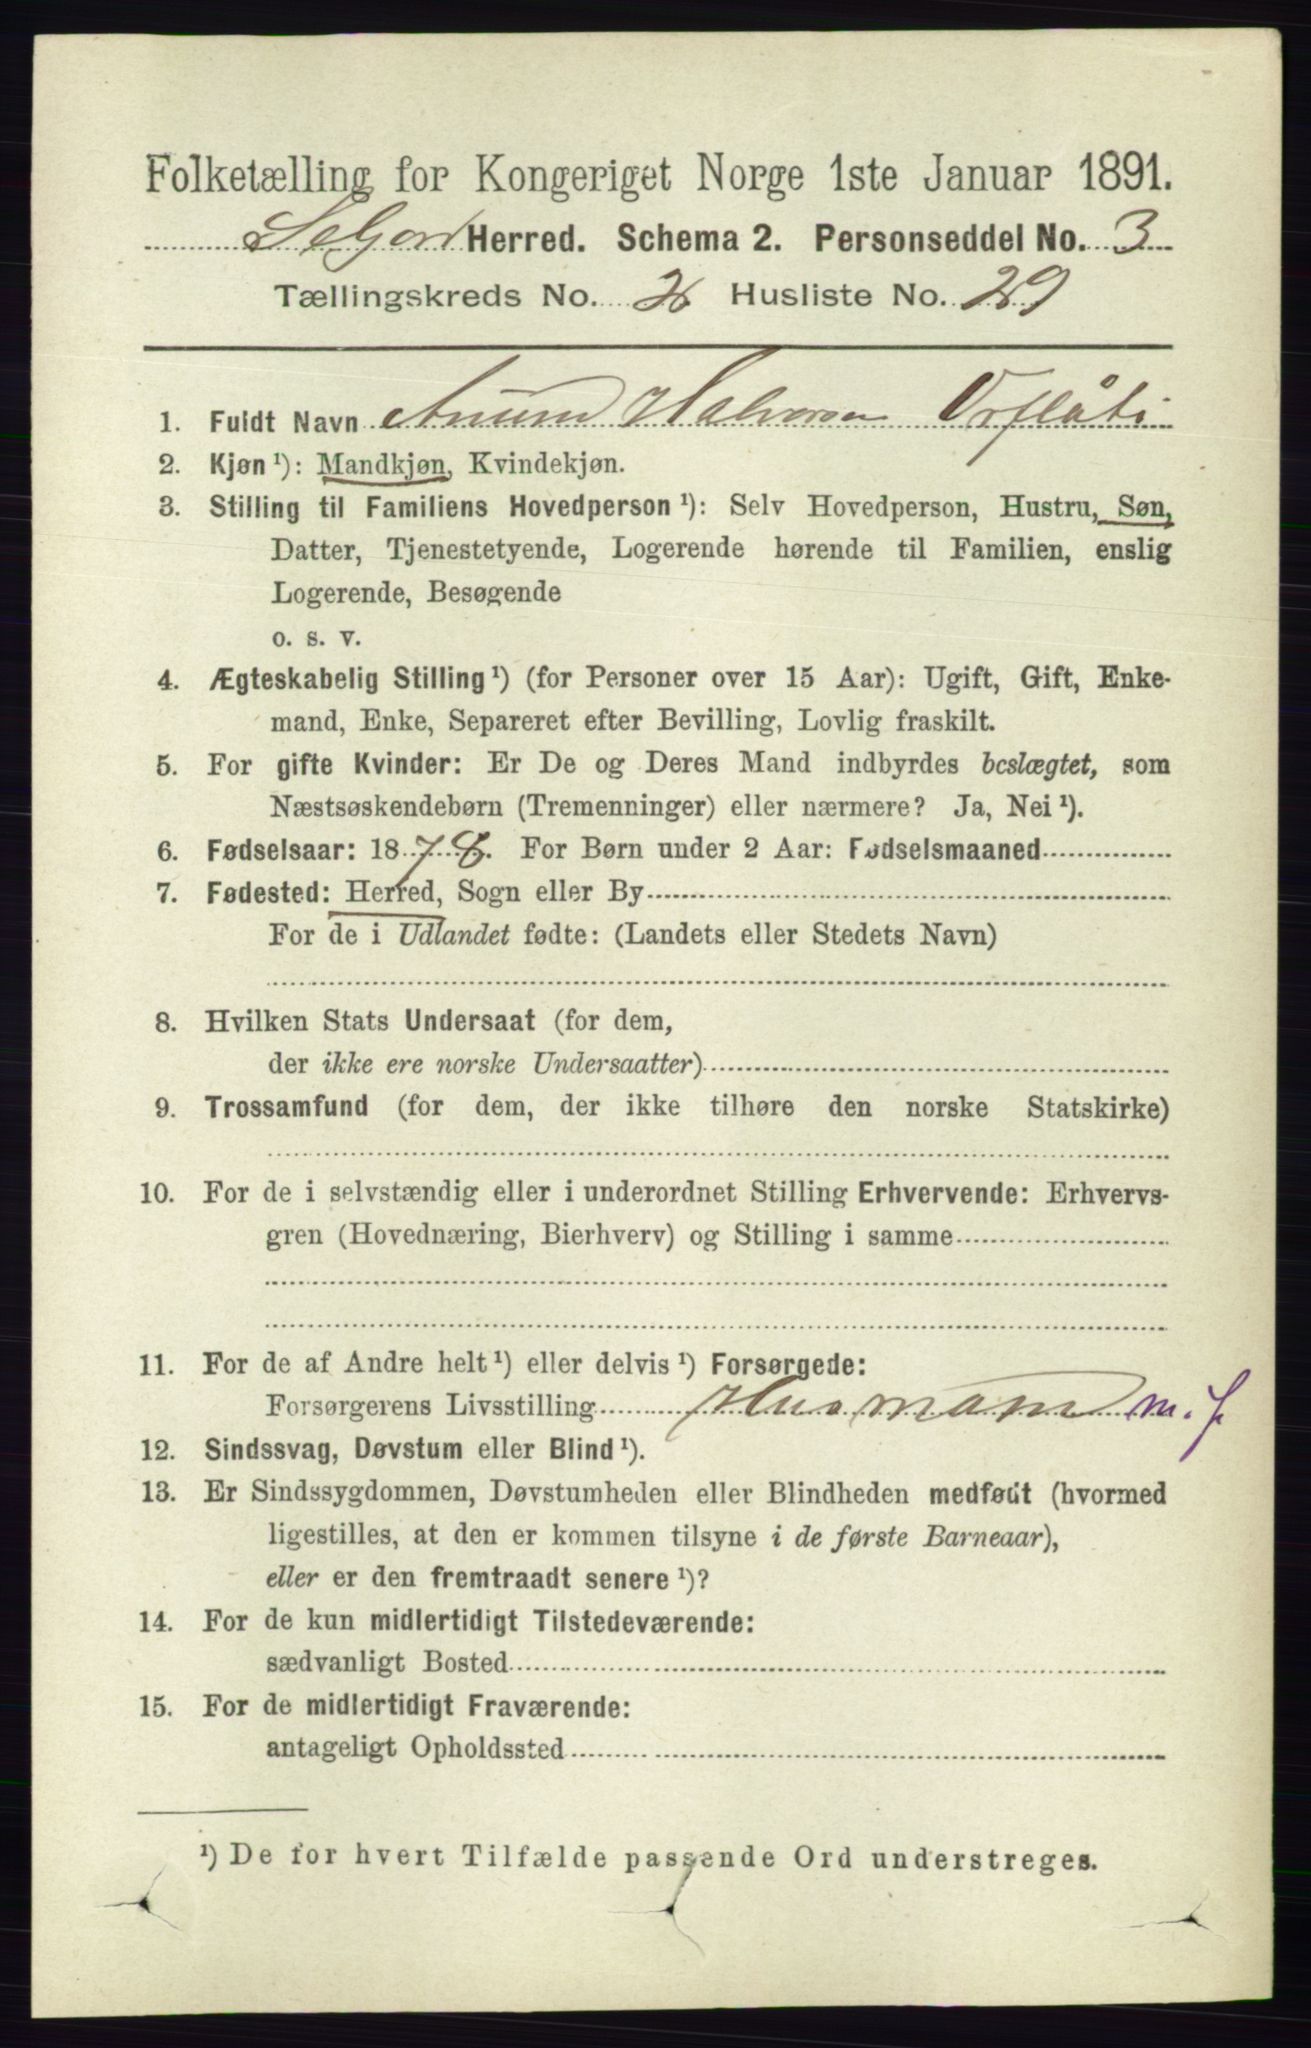 Folketælling for Kongeriget Norge 1ste Januar 1891.
Seljord Herred. Schema 2. Personseddel No. 3
Tællingskreds No. 2 Husliste No. 29
1. Fuldt Navn Aanund Halvorsen Orflåti
2. Kjøn ¹): Mandkjøn, Kvindekjøn.
3. Stilling til Familiens Hovedperson ¹): Selv Hovedperson, Hustru, Søn,
Datter, Tjenestetyende, Logerende hørende til Familien, enslig
Logerende, Besøgende
o. s. v.
4. Ægteskabelig Stilling ¹) (for Personer over 15 Aar): Ugift, Gift, Enke-
mand, Enke, Separeret efter Bevilling, Lovlig fraskilt.
5. For gifte Kvinder: Er De og Deres Mand indbyrdes beslægtet, som
Næstsøskendebørn (Tremenninger) eller nærmere? Ja, Nei ¹).
6. Fødselsaar: 1878. For Børn under 2 Aar: Fødselsmaaned
7. Fødested: Herred, Sogn eller By
For de i Udlandet fødte: (Landets eller Stedets Navn)
8. Hvilken Stats Undersaat (for dem,
der ikke ere norske Undersaatter)
9. Trossamfund (for dem, der ikke tilhøre den norske Statskirke)
10. For de i selvstændig eller i underordnet Stilling Erhvervende: Erhvervs-
gren (Hovednæring, Bierhverv) og Stilling i samme
11. For de af Andre helt ¹) eller delvis ¹) Forsørgede:
Forsørgerens Livsstilling Husmand m. j.
12. Sindssvag, Døvstum eller Blind ¹).
13. Er Sindssygdommen, Døvstumheden eller Blindheden medfødt (hvormed
ligestilles, at den er kommen tilsyne i de første Barneaar),
eller er den fremtraadt senere ¹)?
14. For de kun midlertidigt Tilstedeværende:
sædvanligt Bosted
15. For de midlertidigt Fraværende:
antageligt Opholdssted
¹) De for hvert Tilfælde passende Ord understreges.